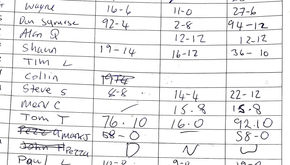 Wayne 16-6 11-0 27-6
Dan Squrise 92-4 2-8 94-12
Alan Q 12-12 12-12
Shaun 19-14 16-12 36-10
Tim L
Collin
Steve S 8-8 14-4 22-12
Marc C 15-8 15-8
Tom T 76.10 16.0 92.10
58-0 58-0
John Prezza D N W
Paul L